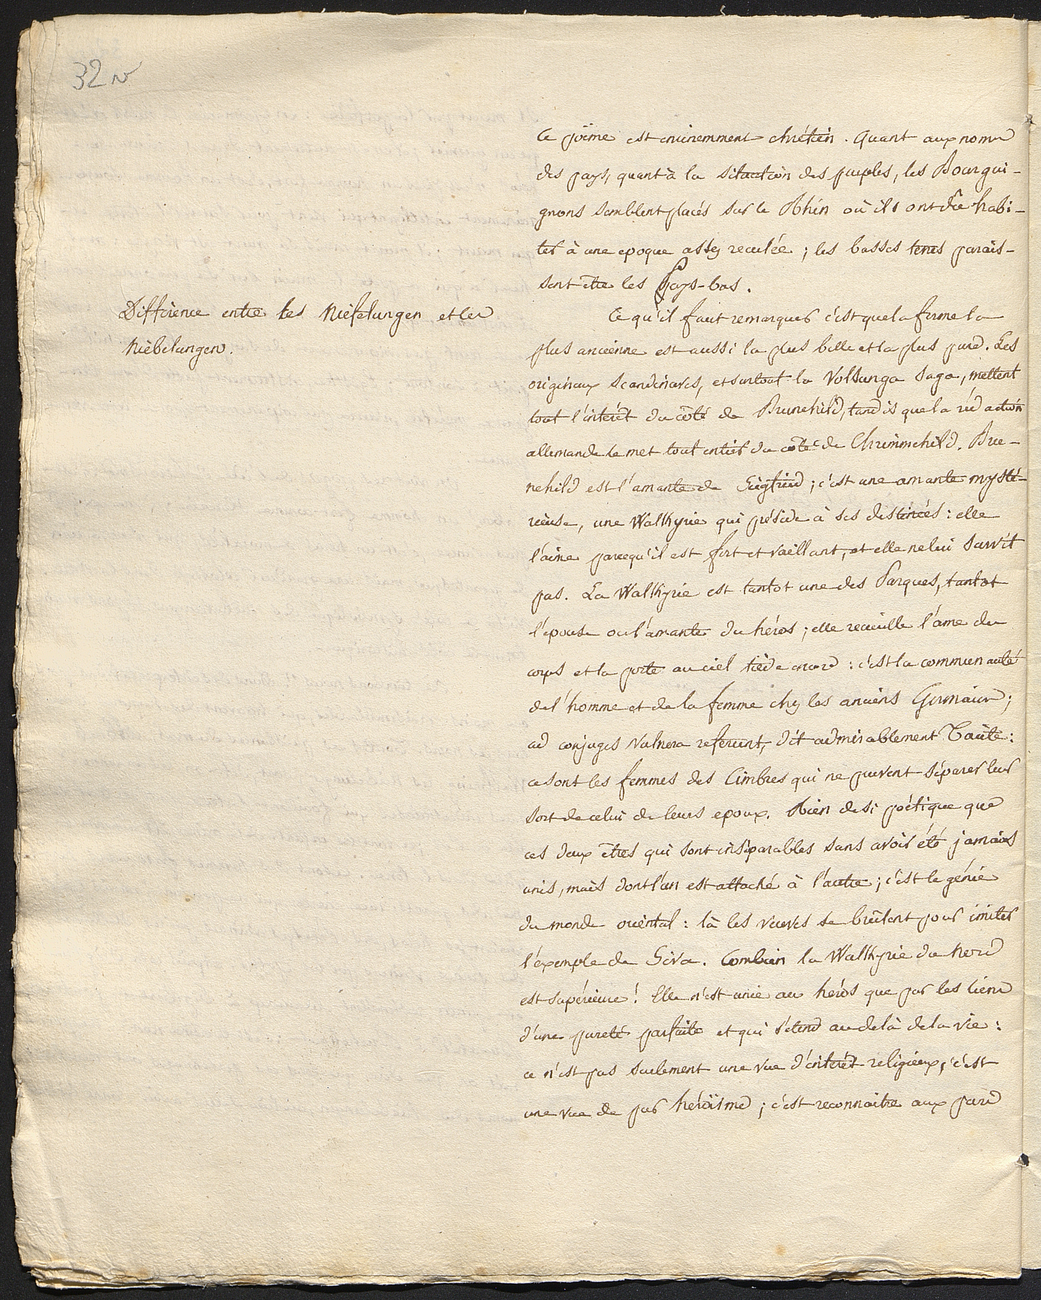 32 v
Ce poëme est éminemment chrétien. Quant aux noms
des pays, quant à la situation des peuples, les Bourgui-
gnons semblent placés sur le Rhin où ils ont dû habi-
ter à une epoque assez reculée ; les basses terres parais-
sent être les Pays-bas.
Différence entre les Niefelungen et les
Niebelungen.
Ce qu'il faut remarquer c'est que la forme la
plus ancienne est aussi la plus belle et la plus pure. Les
originaux Scandinaves, et surtout la Volsunga Saga, mettent
tout l'intérêt du côté de Brunehild, tandis que la rédaction
allemande le met tout entier du côté de Chrimmehild. Bru-
nehild est l'amante de Siegfried ; c'est une amante mysté-
rieuse, une Walkyrie qui préside à ses destinées : elle
l'aime parcequ'il est fort et vaillant, et elle ne lui survit
pas. La Walkyrie est tantot une des Parques, tantot
l'épouse ou l'amante du héros ; elle recueille l'ame du
corps et la porte au ciel tiède encore : c'est la communauté
de l'homme et de la femme chez les anciens Germains ;
ad conjuges vulnera referunt, dit admirablement Tacite :
ce sont les femmes des Cimbres qui ne peuvent séparer leur
sort de celui de leurs epoux. Rien de si poétique que
ces deux êtres qui sont inséparables sans avoir été jamais
unis, mais dont l'un est attaché à l'autre ; c'est le génie
du monde oriental : là les veuves se brûlent pour imiter
l'exemple de Siva. Combien la Walkyrie du nord
est supérieure ! Elle n'est unie au héros que par les liens
d'une pureté parfaite et qui s'étend au delà de la vie :
ce n'est pas seulement une vue d'intérêt religieux, c'est
une vue de pur héroïsme ; c'est reconnaitre aux pure